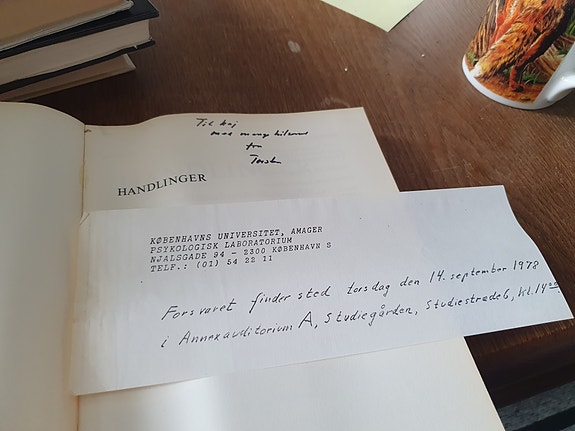 Til Kaj
med mange hilsner
fra
Torsten
HANDLINGER
KØBENHAVNS UNIVERSITET, AMAGER
PSYKOLOGISK LABORATORIUM
NJALSGADE 94 - 2300 KØBENHAVN S
TELF.: (01) 54 22 11
Forsvaret finder sted torsdag den 14. september 1978
i Annexauditorium A, Studiegården, Studiestræde 6, kl. 14⁰⁰.